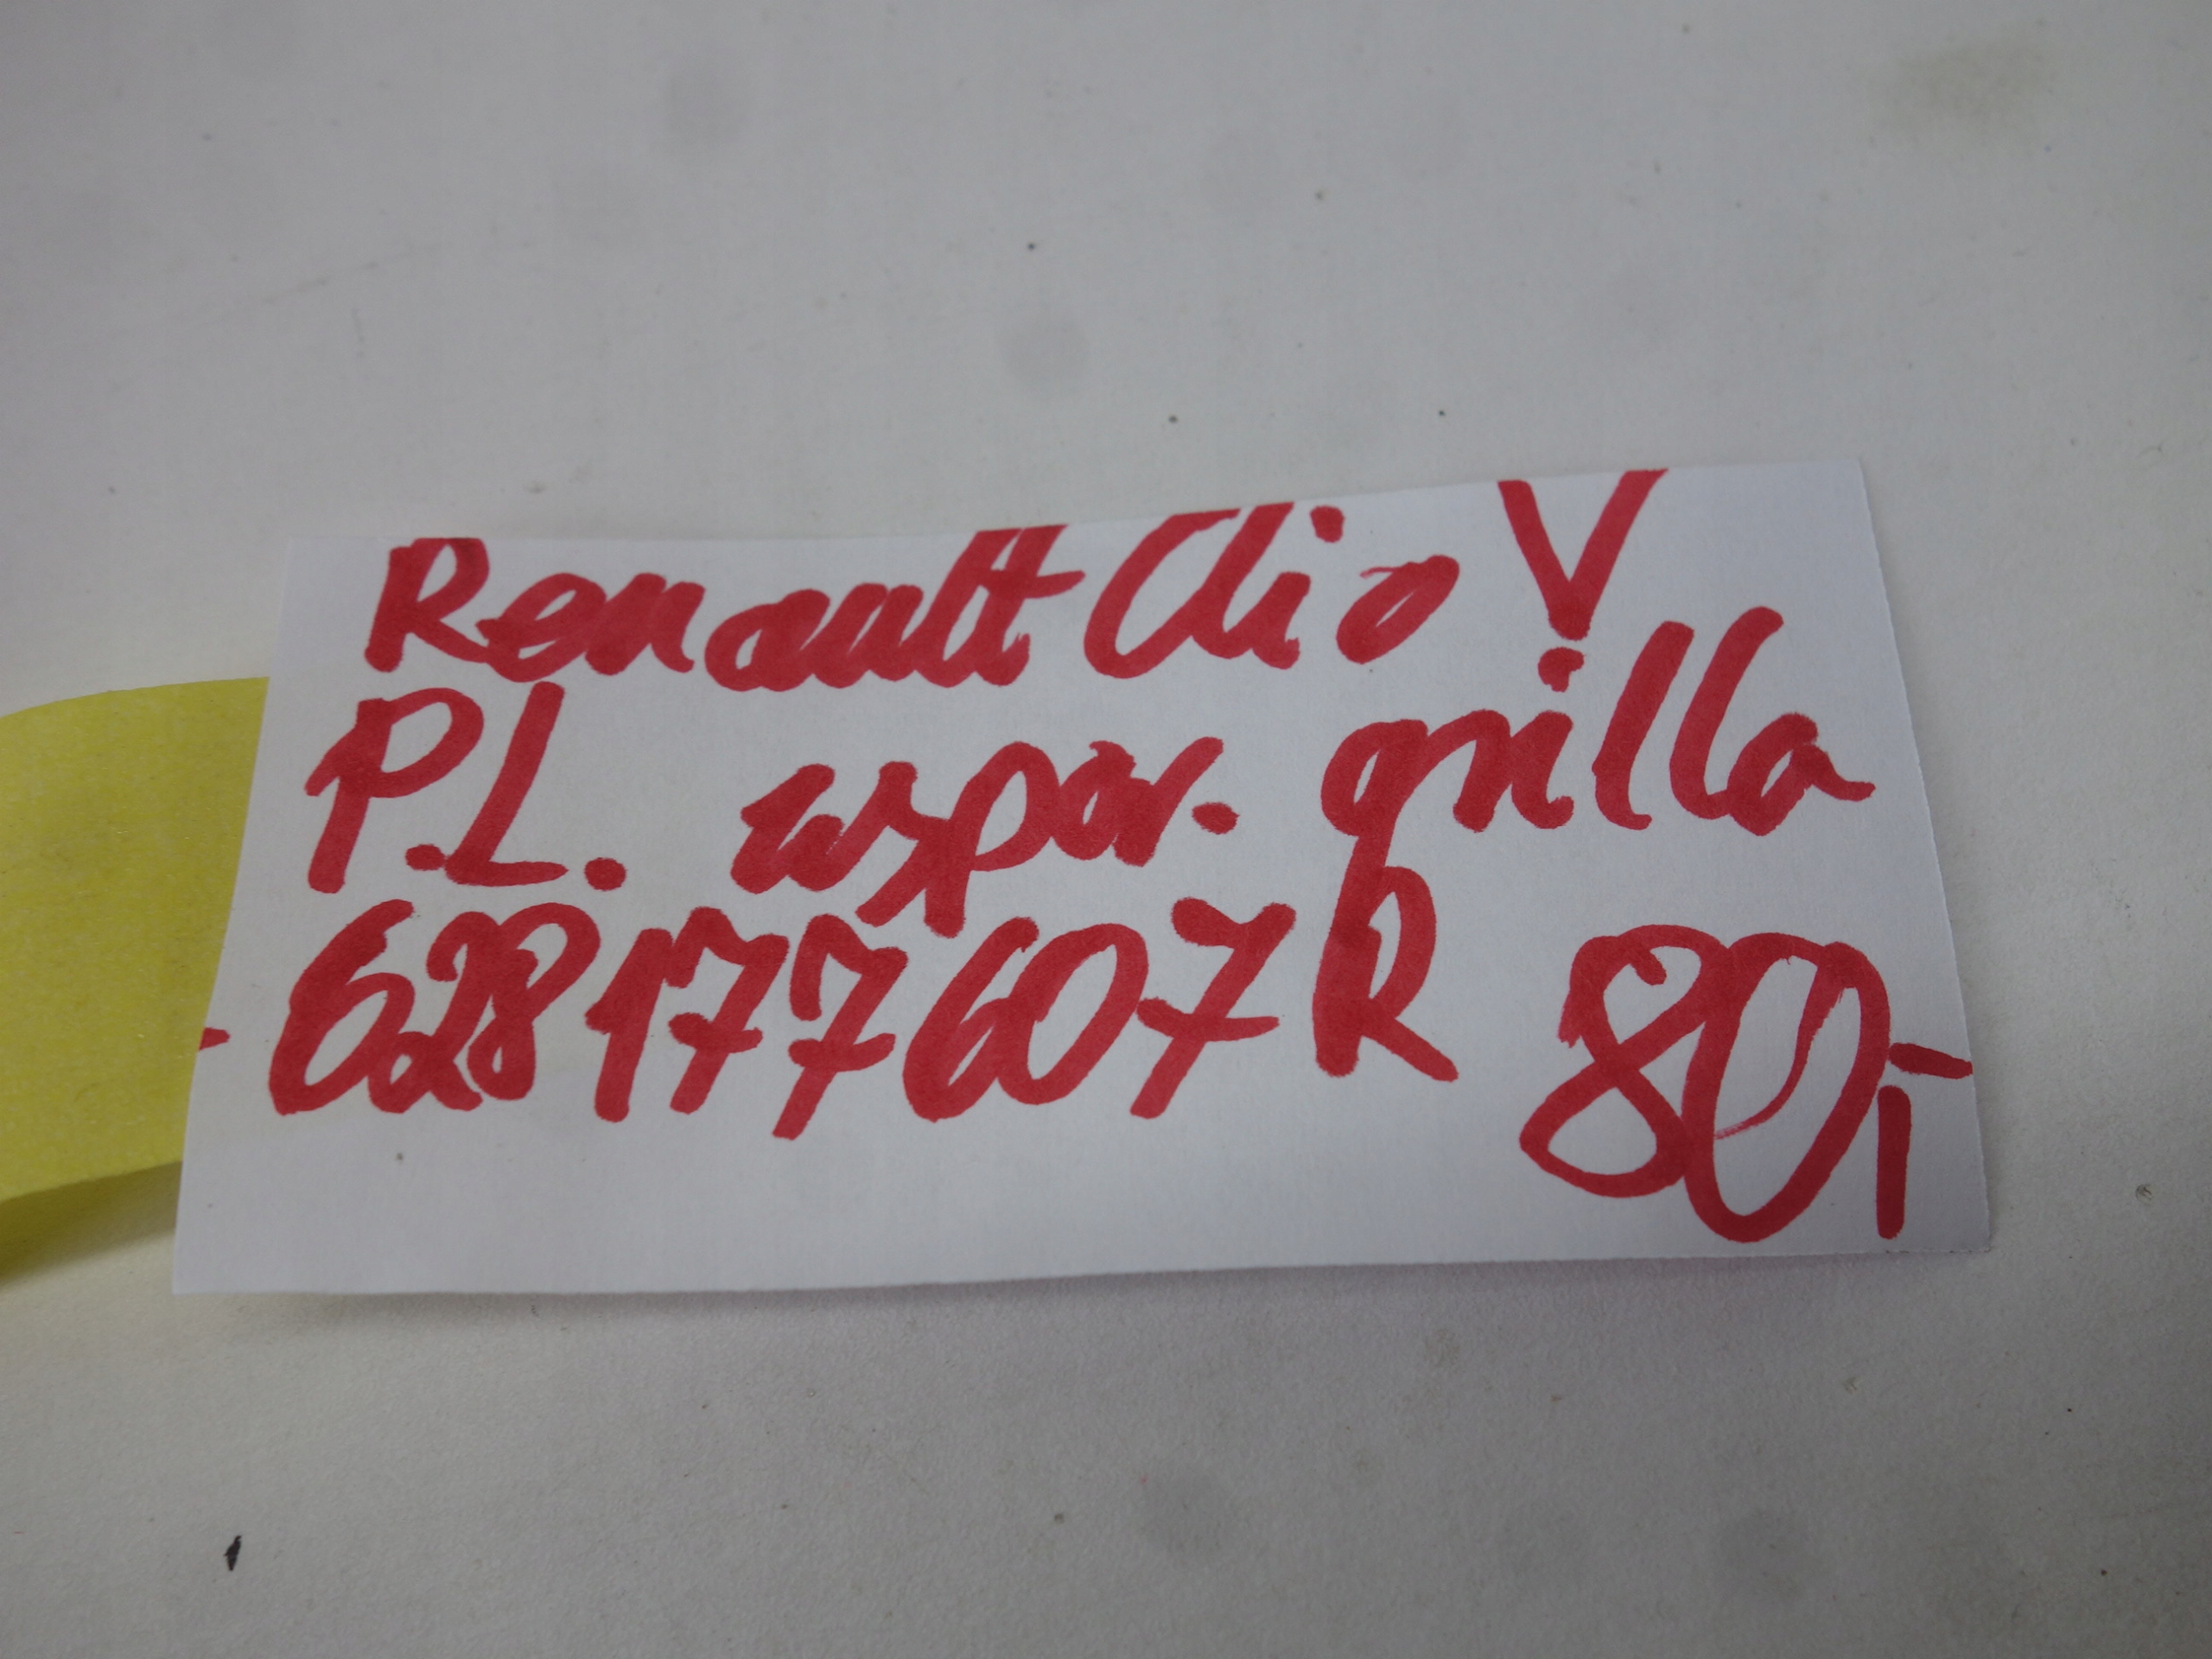 Renault Clio V
P.L. wspor. grilla
628177607R 80,-